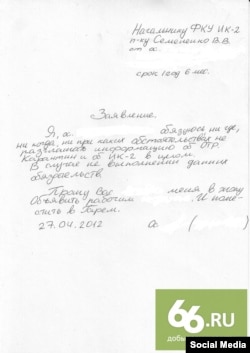 Начальнику ФКУ ИК-2
п-ку Семененко В.В.
от о.
срок 1 год 6 мес.
Заявление.
Я, о. обязуюсь ни где,
ни когда, ни при каких обстоятельствах не
разглашать информацию об отр.
Карантин и об ИК-2 в целом.
В случае не выполнении данных
обязательств.
Прошу Вас меня в
Объявить рабочим . И
стить в Гарем.
27.04.2012
66.RU
Social Media